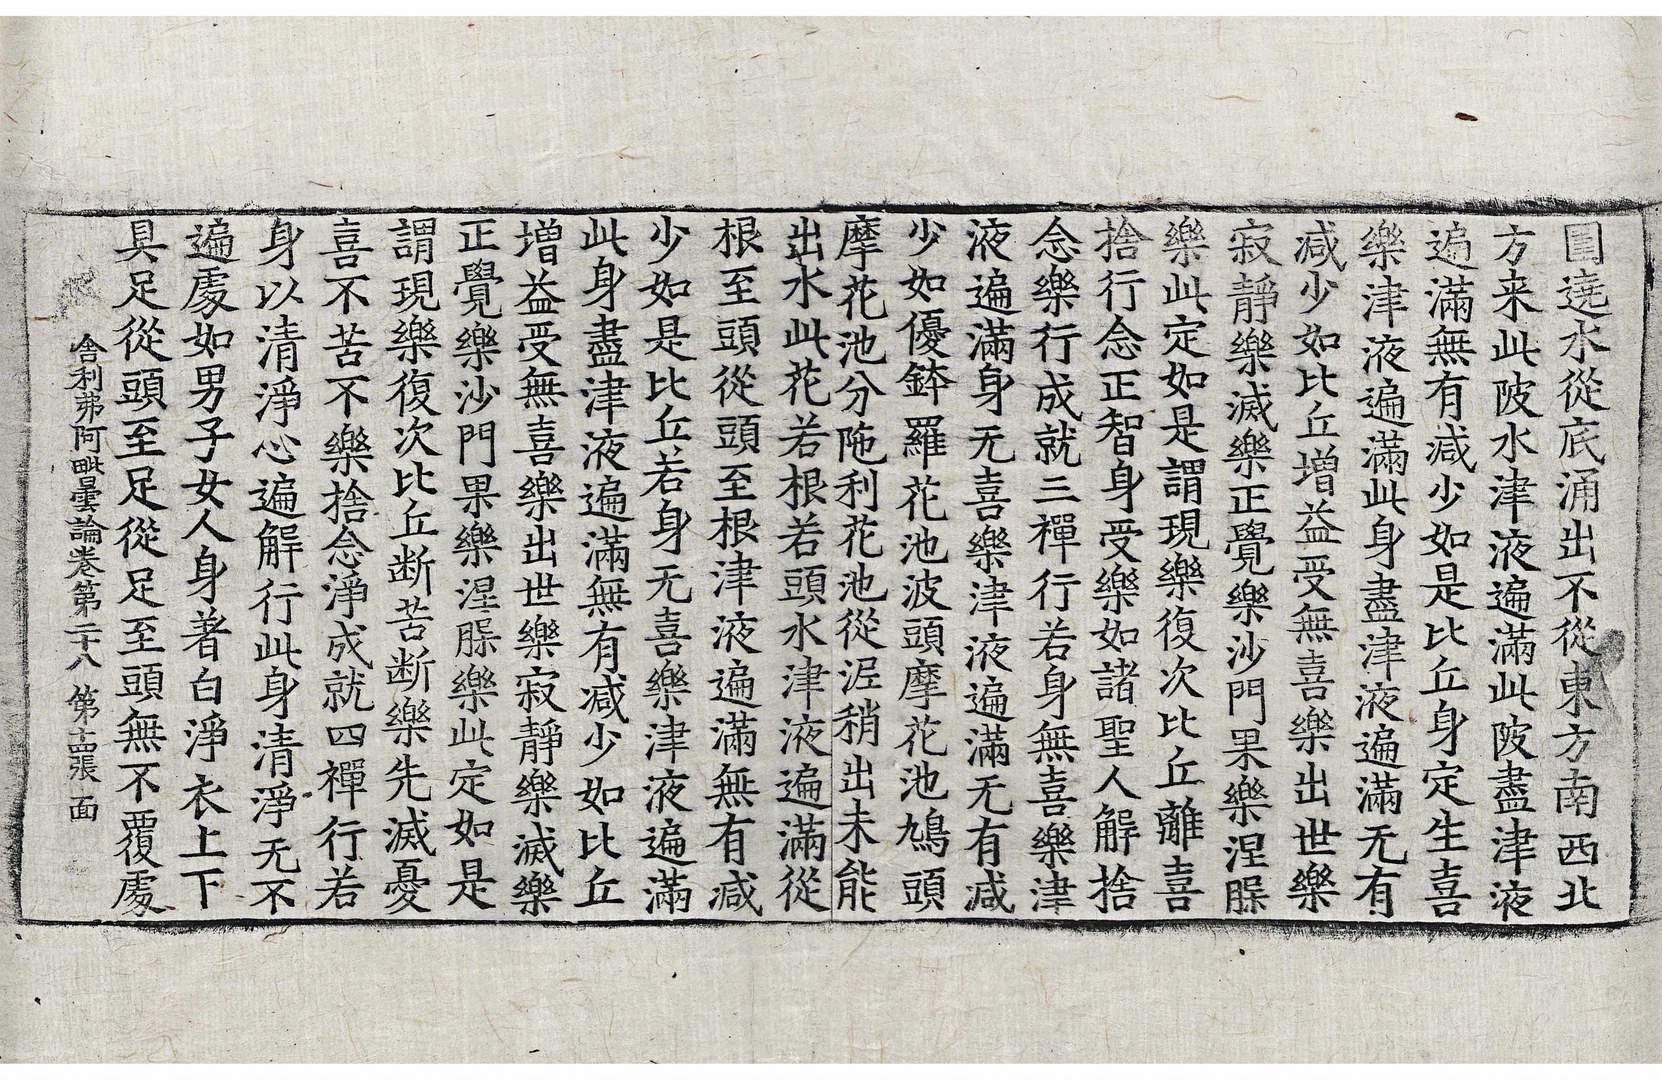 圍遶水從底涌出不從東方南西北
方来此陂水津液遍滿此陂盡津液
遍滿無有減少如是比丘身定生喜
樂津液遍滿此身盡津液遍滿无有
減少如比丘增益受無喜樂出世樂
寂靜樂滅樂正覺樂沙門果樂涅槃
樂此定如是謂現樂復次比丘離喜
捨行念正智身受樂如諸聖人解捨
念樂行成就三禪行若身無喜樂津
液遍滿身无喜樂津液遍滿无有減
少如優鉢羅花池波頭摩花池鳩頭
摩花池分陁利花池從泥稍出未能
出水此花若根若頭水津液遍滿從
根至頭從頭至根津液遍滿無有減
少如是比丘若身无喜樂津液遍滿
此身盡津液遍滿無有減少如比丘
增益受無喜樂出世樂寂靜樂滅樂
正覺樂沙門果樂涅槃樂此定如是
謂現樂復次比丘断苦断樂先滅憂
喜不苦不樂捨念淨成就四禪行若
身以清淨心遍解行此身清淨无不
遍處如男子女人身著白淨衣上下
具足從頭至足從足至頭無不覆處
舍利弗阿毗曇論卷第二十八 第十四張 面